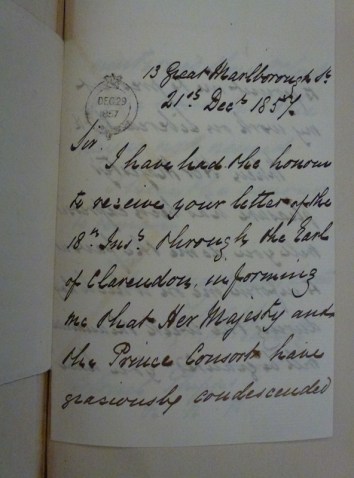 13 Great Marlborough St
21st Decr 1857/.
DEC 29
1857
Sir.
I have had the honour
to receive your letter of the
18th Inst. through the Earl
of Clarendon, informing
me that Her Majesty and
the Prince Consort have
graciously condescended